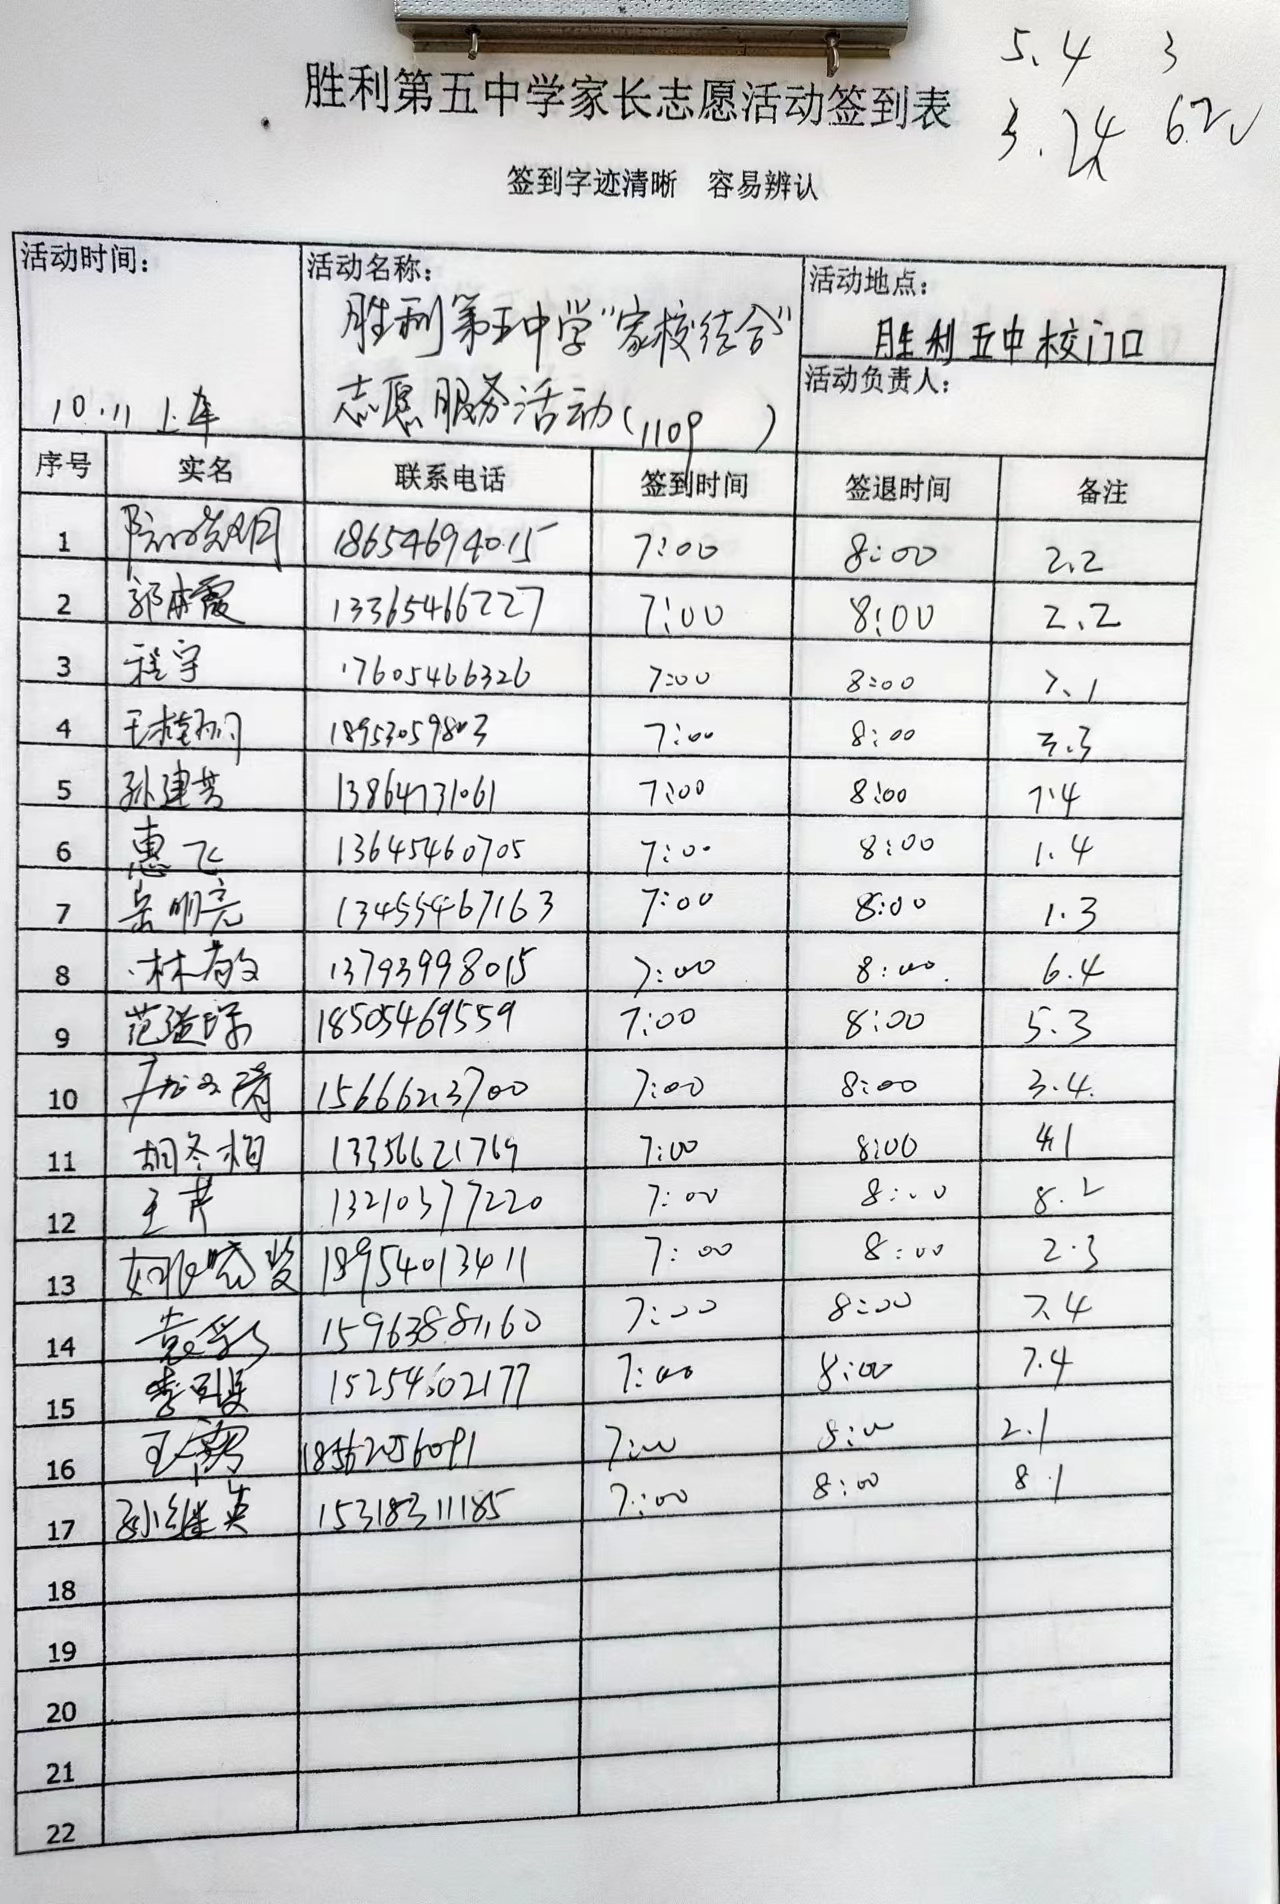 5.4 3
3.24
胜利第五中学家长志愿活动签到表
签到字迹清晰 容易辨认
活动时间:
10.11 上午
活动名称:
胜利第五中学“家校结合”
志愿服务活动(1109 )
活动地点:
胜利五中校门口
活动负责人:
序号 实名 联系电话 签到时间 签退时间 备注
1 18654694015 7:00 8:00 2.2
2 郭本霞 13365466227 7:00 8:00 2.2
3 程宇 17605466326 7:00 8:00 7.1
4 18953059803 7:00 8:00 3.3
5 孙建芳 13864731061 7:00 8:00 7.4
6 惠飞 13645460705 7:00 8:00 1.4
7 岳明亮 13455467163 7:00 8:00 1.3
8 林敬 13793998015 7:00 8:00 6.4
9 18505469559 7:00 8:00 5.3
10 15666213700 7:00 8:00 3.4
11 胡冬梅 13356621769 7:00 8:00 4.1
12 王芹 13210377220 7:00 8:00 8.2
13 18954013411 7:00 8:00 2.3
14 袁彩 15963881160 7:00 8:00 7.4
15 李 15254602177 7:00 8:00 7.4
16 王霞 18562056091 7:00 8:00 2.1
17 孙继英 15318311185 7:00 8:00 8.1
18
19
20
21
22